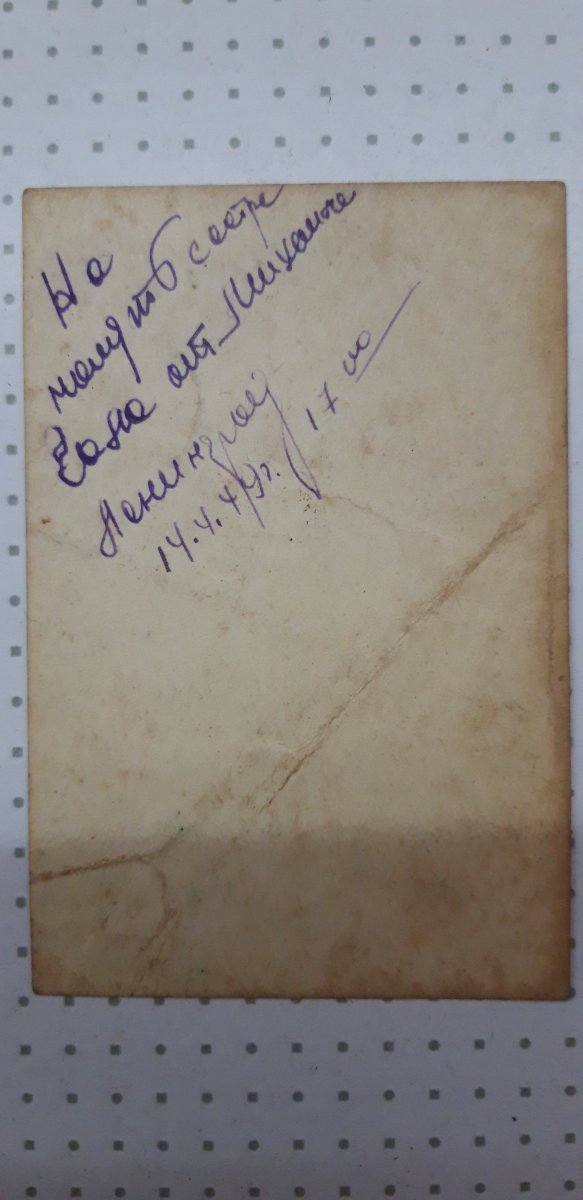 На
память сестре
от Михаила
Ленинград
14.4.49г. 17 00